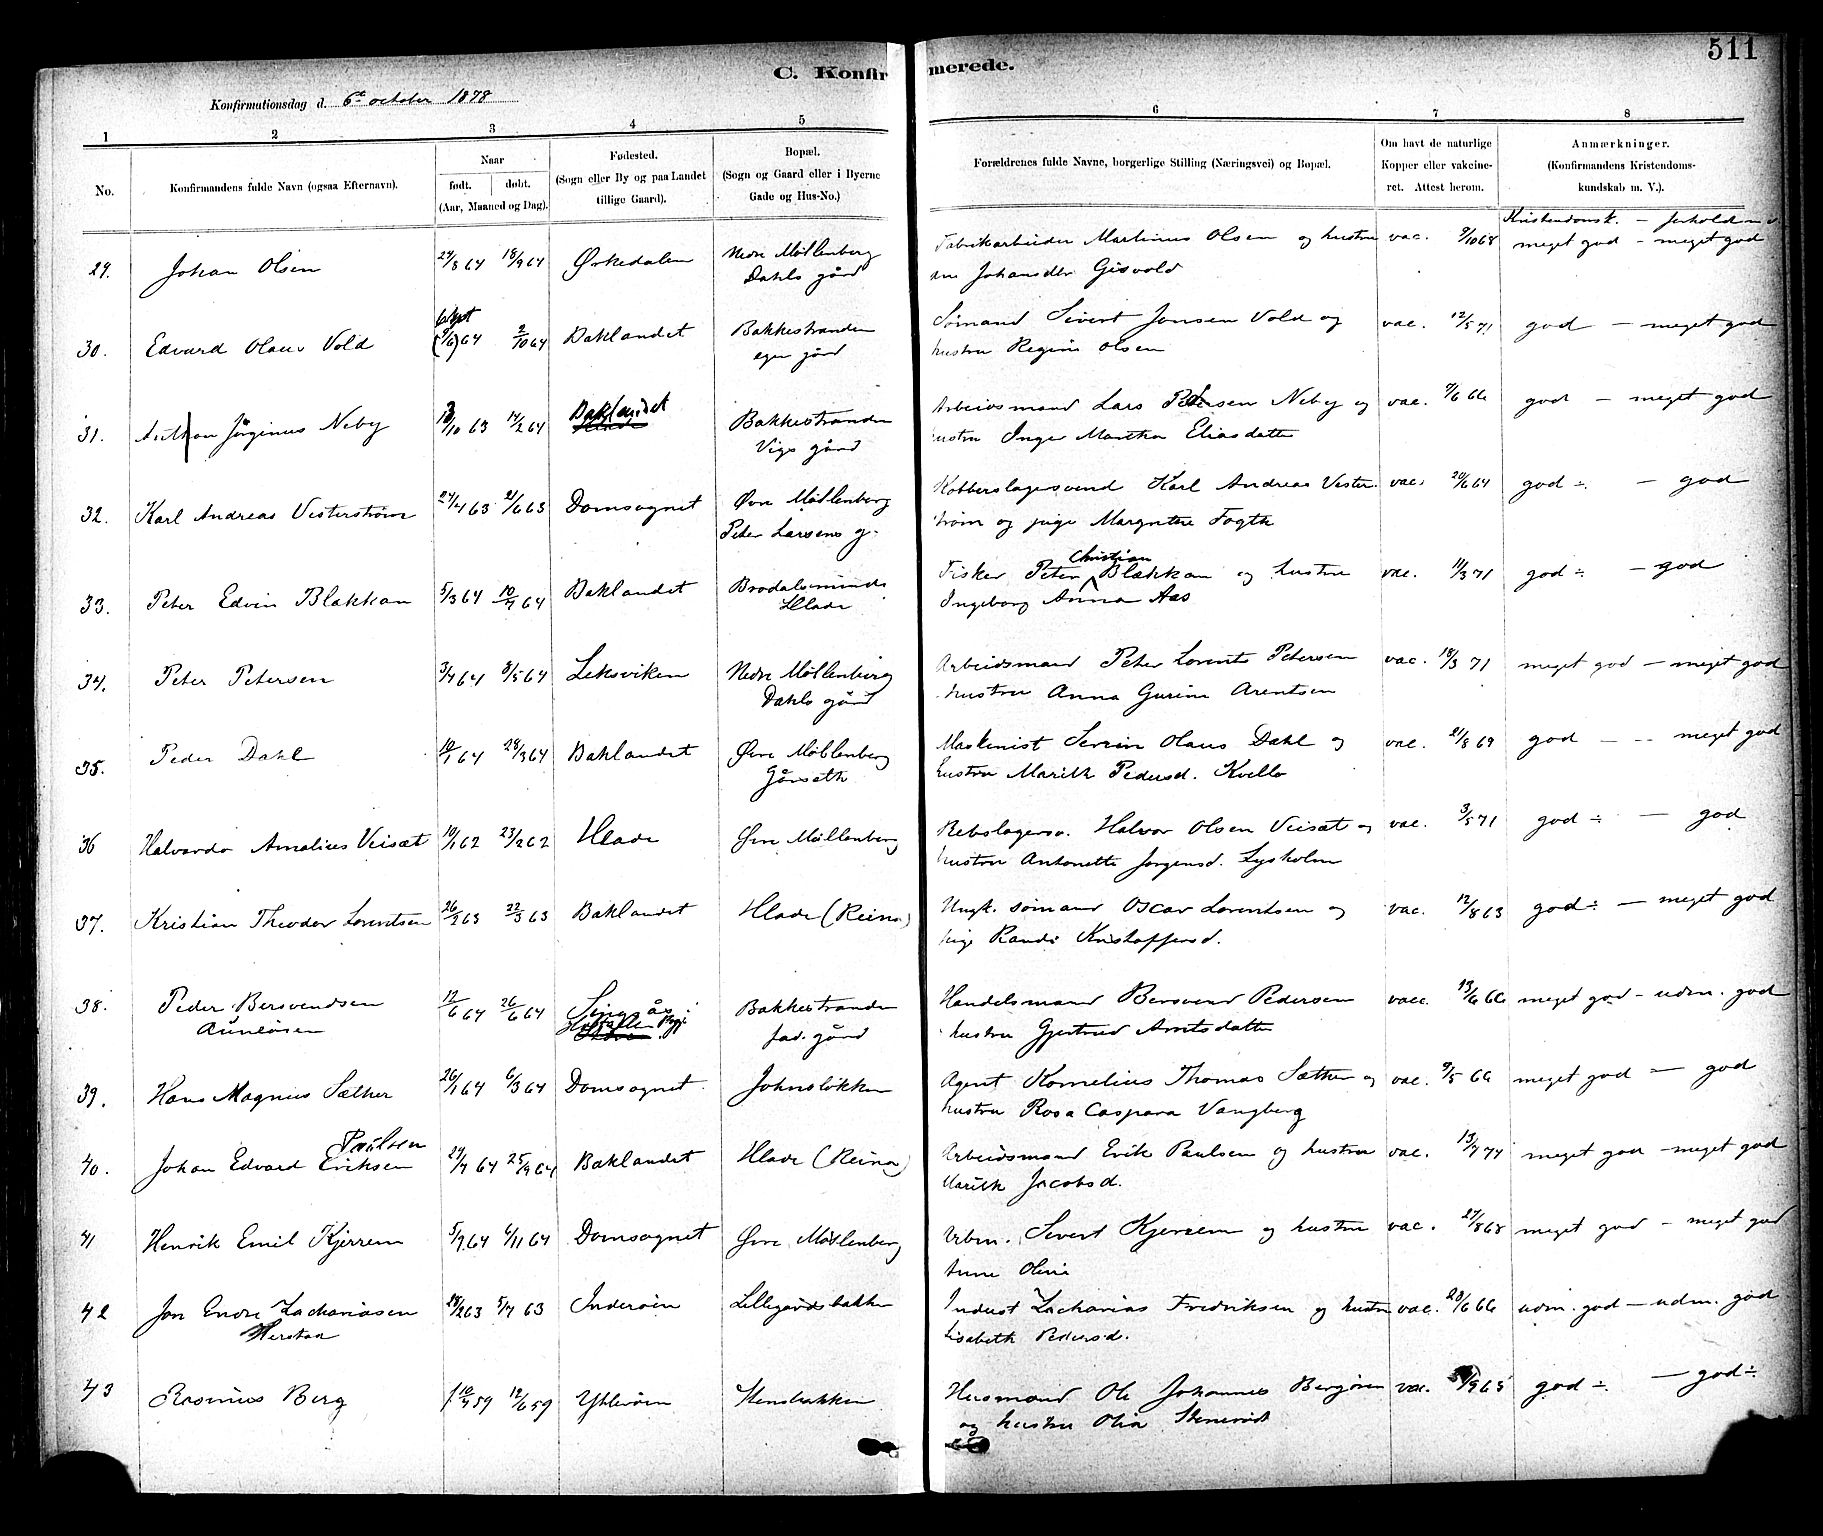 511
C. Konfirmerede.
Konfirmationsdag d. 6te october 1878
1 2 3 4 5 6 7 8
No.
Konfirmandens fulde Navn (ogsaa Efternavn).
Naar
født. døbt.
(Aar, Maaned og Dag).
Fødested.
(Sogn eller By og paa Landet
tillige Gaard).
Bopæl.
(Sogn og Gaard eller i Byerne
Gade og Hus-No.)
Forældrenes fulde Navne, borgerlige Stilling (Næringsvei) og Bopæl.
Om havt de naturlige
Kopper eller vakcine-
ret. Attest herom.
Anmærkninger.
(Konfirmandens Kristendoms-
kundskab m. V.).
Kristendomsk. — forhold
29. Johan Olsen 24/8 64 18/9 64 Ørkedalen Nedre Möllenberg Fabrikarbeider Martinus Olsen og hustru vac. 9/10 68 meget god — meget god
Dahls gård Johansdtr Gisvold
30. Edvard Olaus Vold 64 2/10 64 Baklandet Bakkestranden Sømand Sivert Jonsen Vold og vac. 12/5 71 god — meget god
egen gård hustru Regine Olsen
31. Anton Jørginus Neby 10/10 63 14/2 64 Baklandet Bakkestranden Arbeidsmand Lars Petersen Neby og vac. 7/6 66 god — meget god
Vigs gård hustru Inger Martha Eliasdatter
32. Karl Andreas Vesterstrøm 24/4 63 21/6 63 Domsognet Øvre Möllenberg Kobberslagersvend Karl Andreas Vester vac. 20/6 64 god ÷ — god
Peter Larsens g. strøm og pige Margrethe Fogth
33. Peter Edvin Blakkan 5/3 64 10/7 64 Baklandet Brodalsminde Fisker Peter Christian Blækkan og hustru vac. 11/3 71 god ÷ — god
Hlade Ingeborg Anna Aas
34. Peter Petersen 3/4 64 8/5 64 Leksviken Nedre Möllenberg Arbeidsmand Peter Lorents Petersen vac. 18/3 71 meget god — meget god
Dahls gård hustru Anna Gurine Arentsen
35. Peder Dahl 10/1 64 28/3 64 Baklandet Øvre Möllenberg Maskinist Serein Olaus Dahl og vac. 21/8 69 god — meget god
Gårseth hustru Marith Pedersd. Kvello
36 Halvardo Amalius Veisæt 10/1 62 23/2 62 Hlade Øvre Möllenberg Rebslagersv. Halvor Olsen Veisæt og vac. 3/5 71 god ÷ — god
hustru Antonette Jørgensd. Lysholm
37. Kristian Theodor Lorentsen 26/2 63 22/3 63 Baklandet Hlade (Reina) Ungk. sømand Oscar Lorentsen og vac. 12/8 63 god ÷ — meget god
pige Randi Kristoffersd.
38. Peder Bersvendsen 12/6 64 26/6 64 Singsås Bakkestranden Handelsmand Bersvend Pedersen vacc. 13/6 66 meget god — udm. god
Aunløsen fad. gård hustru Gjertrud Arntsdatter
39. Hans Magnus Sæther 26/1 64 6/3 64 Domsognet Johnsløkken Agent Kornelius Thomas Sæther og vac. 9/5 66 meget god — god
hustru Rosa Caspara Vangberg
40. Johan Edvard Eriksen Paulsen 29/7 64 25/9 64 Baklandet Hlade (Reina) Arbeidsmand Erik Paulsen og hustru vac. 13/7 74 meget god — meget god
Marith Jacobsd.
41 Henrik Emil Kjerrem 5/9 64 6/11 64 Domsognet Øvre Möllenberg Arbm. Sivert Kjerrem og hustru vac. 27/8 68 meget god — meget god
Anne Oline
42 Jon Endre Zachariasen 18/2 63 5/4 63 Inderøen Lillegårdsbakken Inderst Zacharias Fredriksen og hustru vac. 20/6 66 udm. god — udm. god
Herstad Lisabeth Pedersd.
43 Rasmus Berg 10/4 59 12/6 59 Ytterøen Stensbakken Husmand Ole Johannes Bergsven vac. 5/9 65 god ÷ — god ÷
og hustru Olia Stenerødt